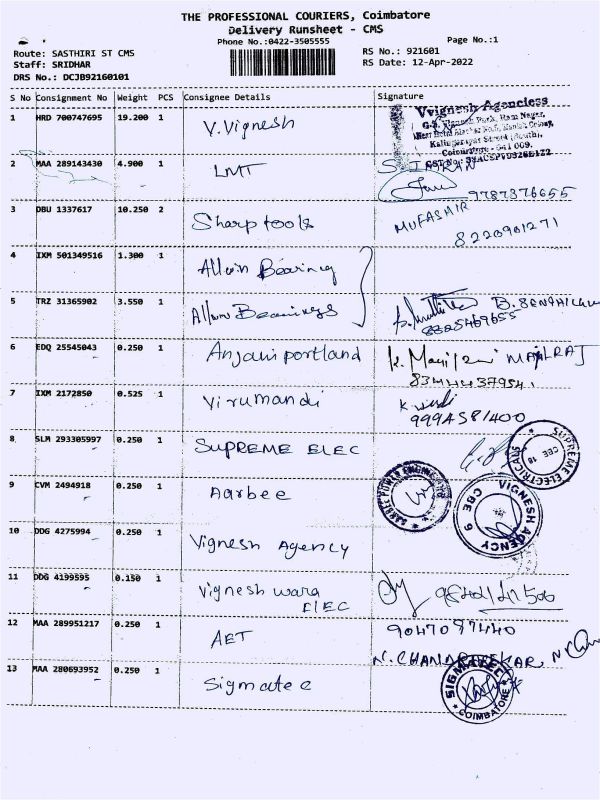 THE PROFESSIONAL COURIERS, Coimbatore
Delivery Runsheet - CMS
Phone No.:0422-3505555
Page No.:1
Route: SASTHIRI ST CMS
Staff: SRIDHAR
DRS No.: DCJB92160101
RS No.: 921601
RS Date: 12-Apr-2022
S No Consignment No Weight PCS Consignee Details Signature
1 HRD 700747695 19.200 1 V.Vignesh
Vvignesh Agenciess
Coimbatore - 641 009.
2 MAA 289143430 4.900 1 LMT S. IMRAN
9787376655
3 DBU 1337617 10.250 2 Sharp tools MUFASHIR
8220901271
4 IXM 501349516 1.300 1 Allwin Bearing
5 TRZ 31365902 3.550 1 Allwin Bearings
6 EDQ 25545043 0.250 1 Anjaniportland
7 IXM 2172850 0.525 1 Virumandi
8 SLM 293305997 0.250 1 SUPREME ELEC
SUPREME ELECTRICALS CBE 18
9 CVM 2494918 0.250 1 Aarbee
VIGNESH AGENCY CBE
10 DDG 4275994 0.250 1 Vignesh Agency
11 DDG 4199595 0.150 1 Vignesh wara
ELEC
12 MAA 289951217 0.250 1 AET 9047097440
13 MAA 280693952 0.250 1 Sigmatec
SIGMATEC COIMBATORE